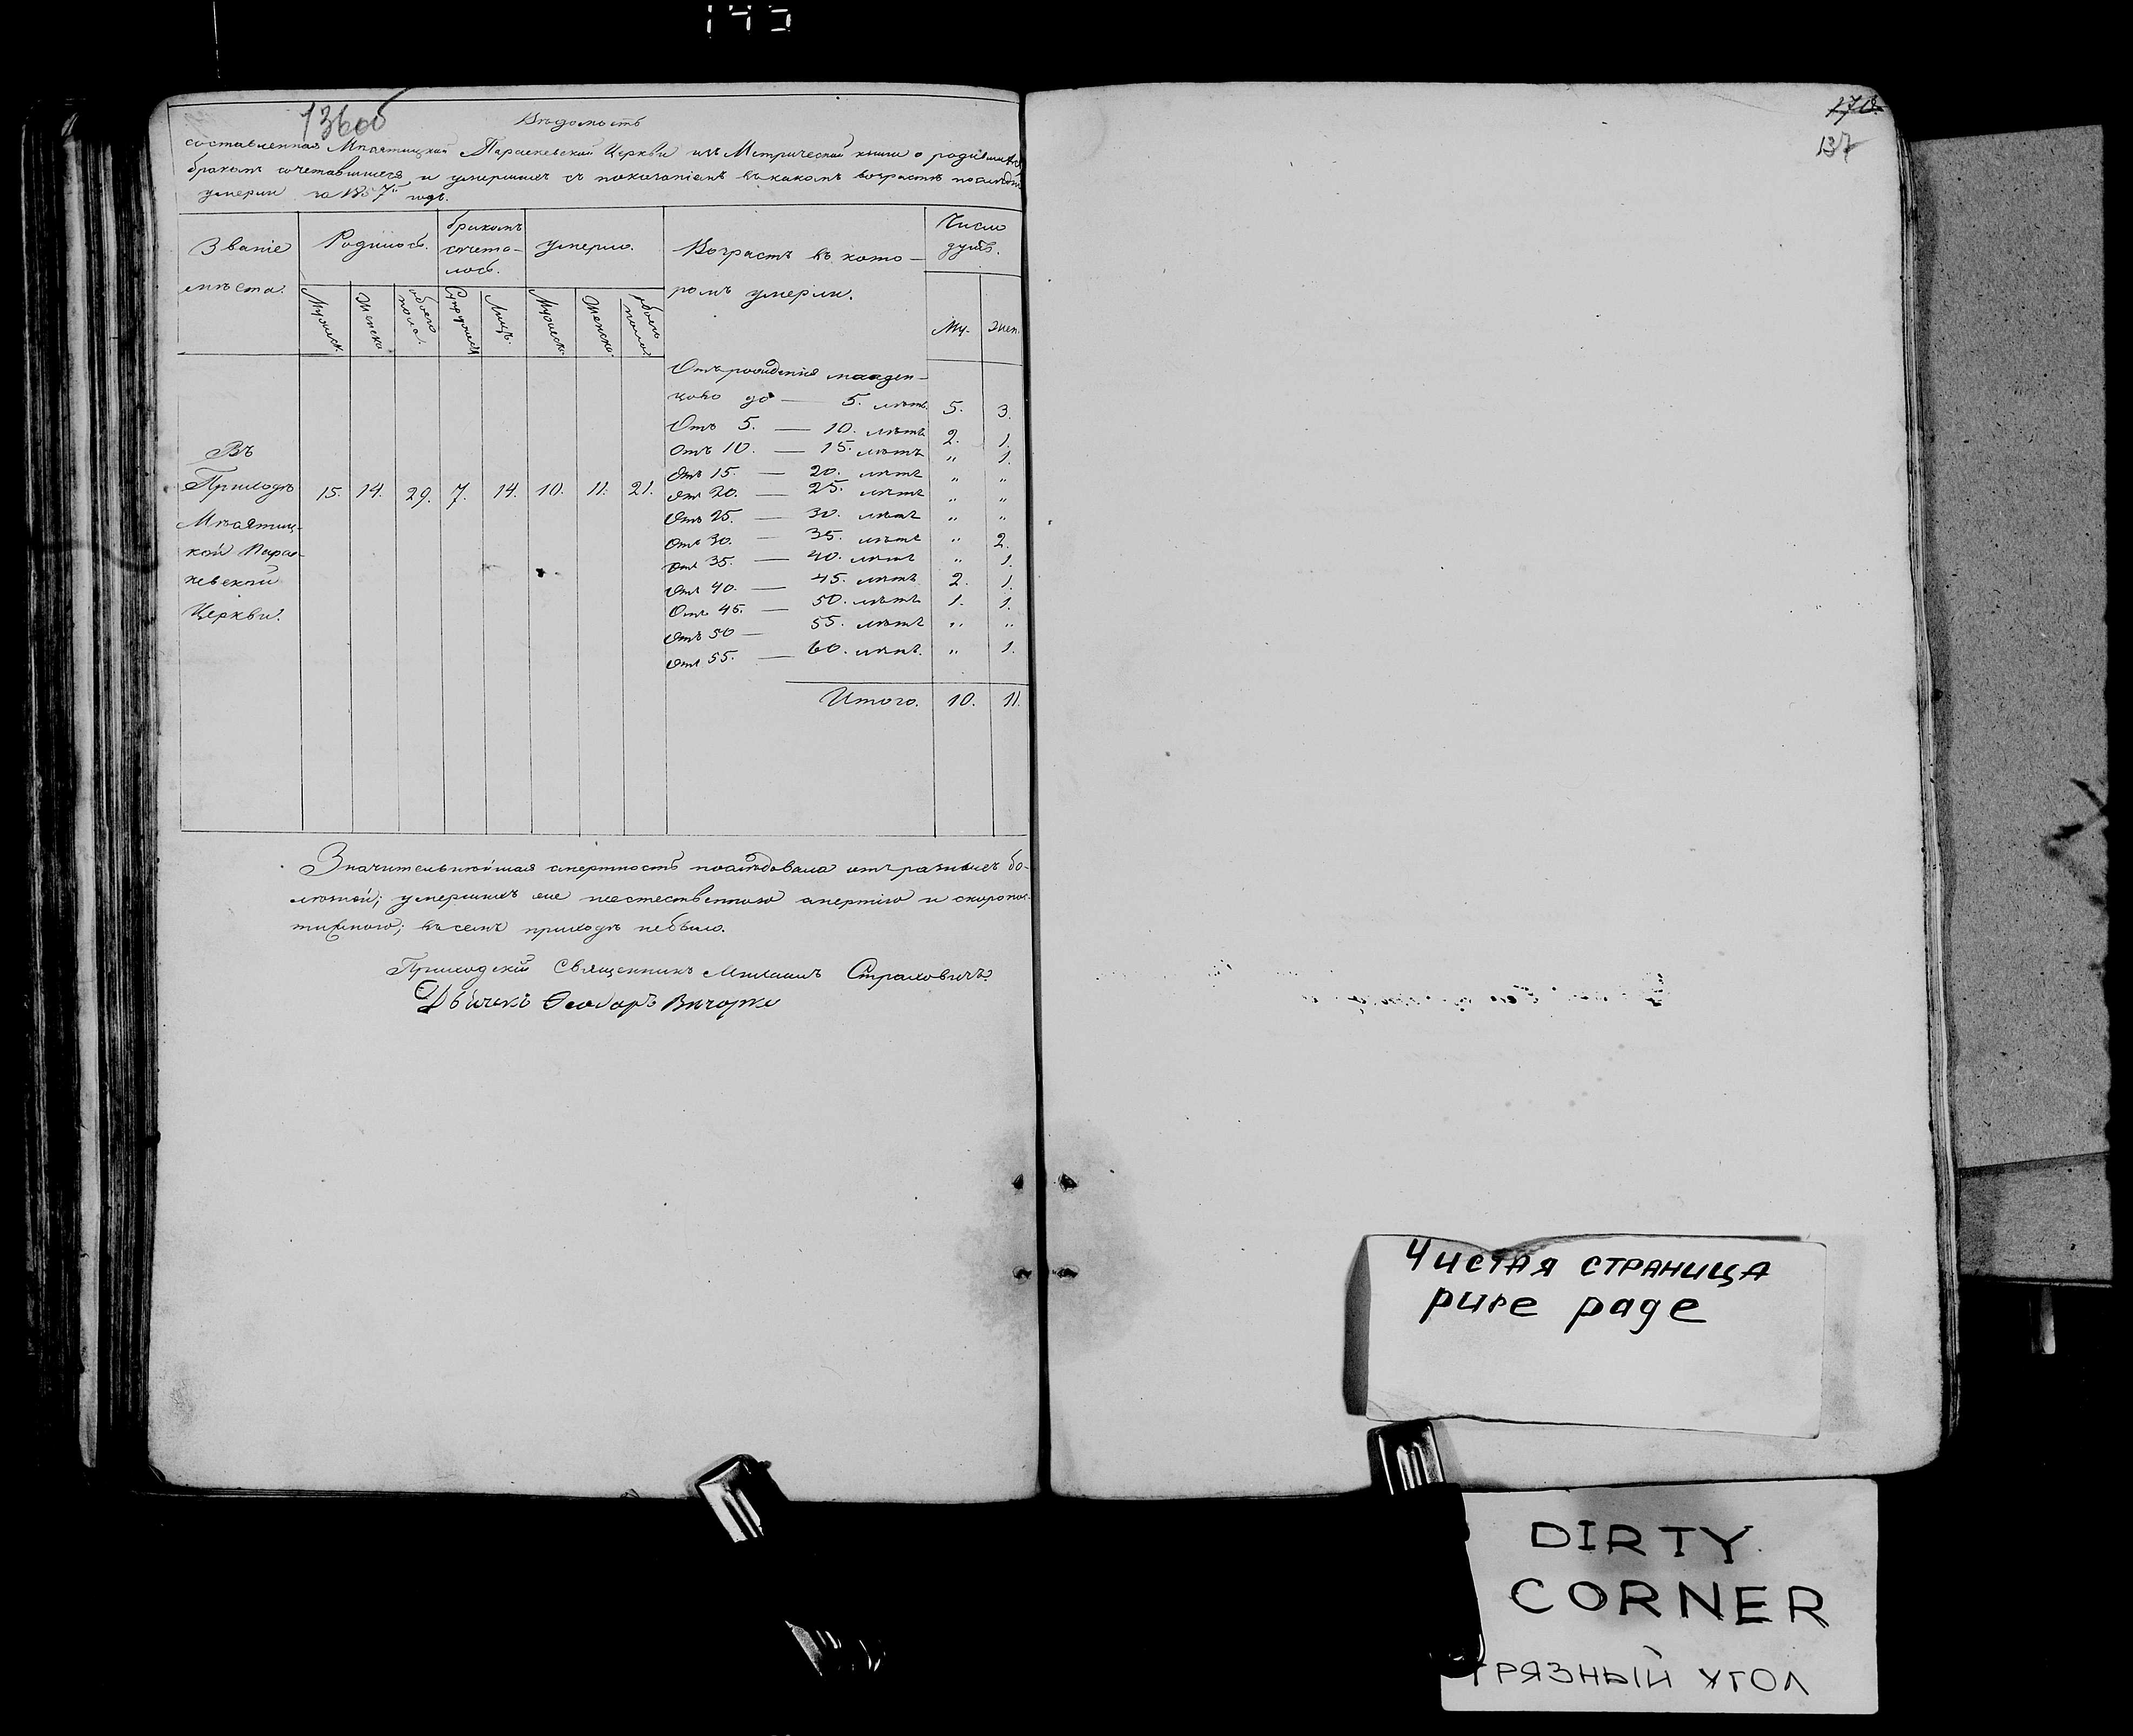 136об
Вѣдомость
составленная Мнѣятицкой Параскевской Церкви изъ Метрической книги о родившихся
бракомъ сочетавшихся и умершихъ съ показаніемъ въ какомъ возрастѣ последніе
умерли за 1857й годъ.
Званіе мѣста.
Родилось.
бракомъ сочета-
лось.
умерло.
Возрастъ въ кото-
ромъ умерли.
Число
душъ.
Мужеск.
Женска.
обоего пола.
Супружест.
Лицъ.
Мужеска.
Женска.
обоего пола.
Му.
Жен.
Отъ рожденія младен-
цово до — 5. лѣтъ 5. 3.
Отъ 5. — 10. лѣтъ 2. 1.
Отъ 10. — 15. лѣтъ „ 1.
Отъ 15. — 20. лѣтъ „ „
Отъ 20. — 25. лѣтъ „ „
Отъ 25. — 30. лѣтъ „ „
Отъ 30. — 35. лѣтъ „ 2.
Отъ 35. — 40. лѣтъ „ 1.
Отъ 40. — 45. лѣтъ 2. 1.
Отъ 45. — 50. лѣтъ 1. 1.
Отъ 50 — 55. лѣтъ „ „
Отъ 55. — 60. лѣтъ. „ 1.
Итого. 10. 11.
Въ
Приходѣ 15. 14. 29. 7. 14. 10. 11. 21.
Мнѣятиц-
кой Парас-
кевской
Церкви.
Значительнѣйшая смертность последовала отъ разныхъ бо-
лезней; умершихъ же неестественною смертію и скоропос-
тижною; въ семъ приходѣ небыло.
Приходскій Священникъ Михаилъ Страховичъ
Дьячекъ Ѳеодоръ Вечорко
170.
137
Чистая страница
pure page
DIRTY
CORNER
грязный угол